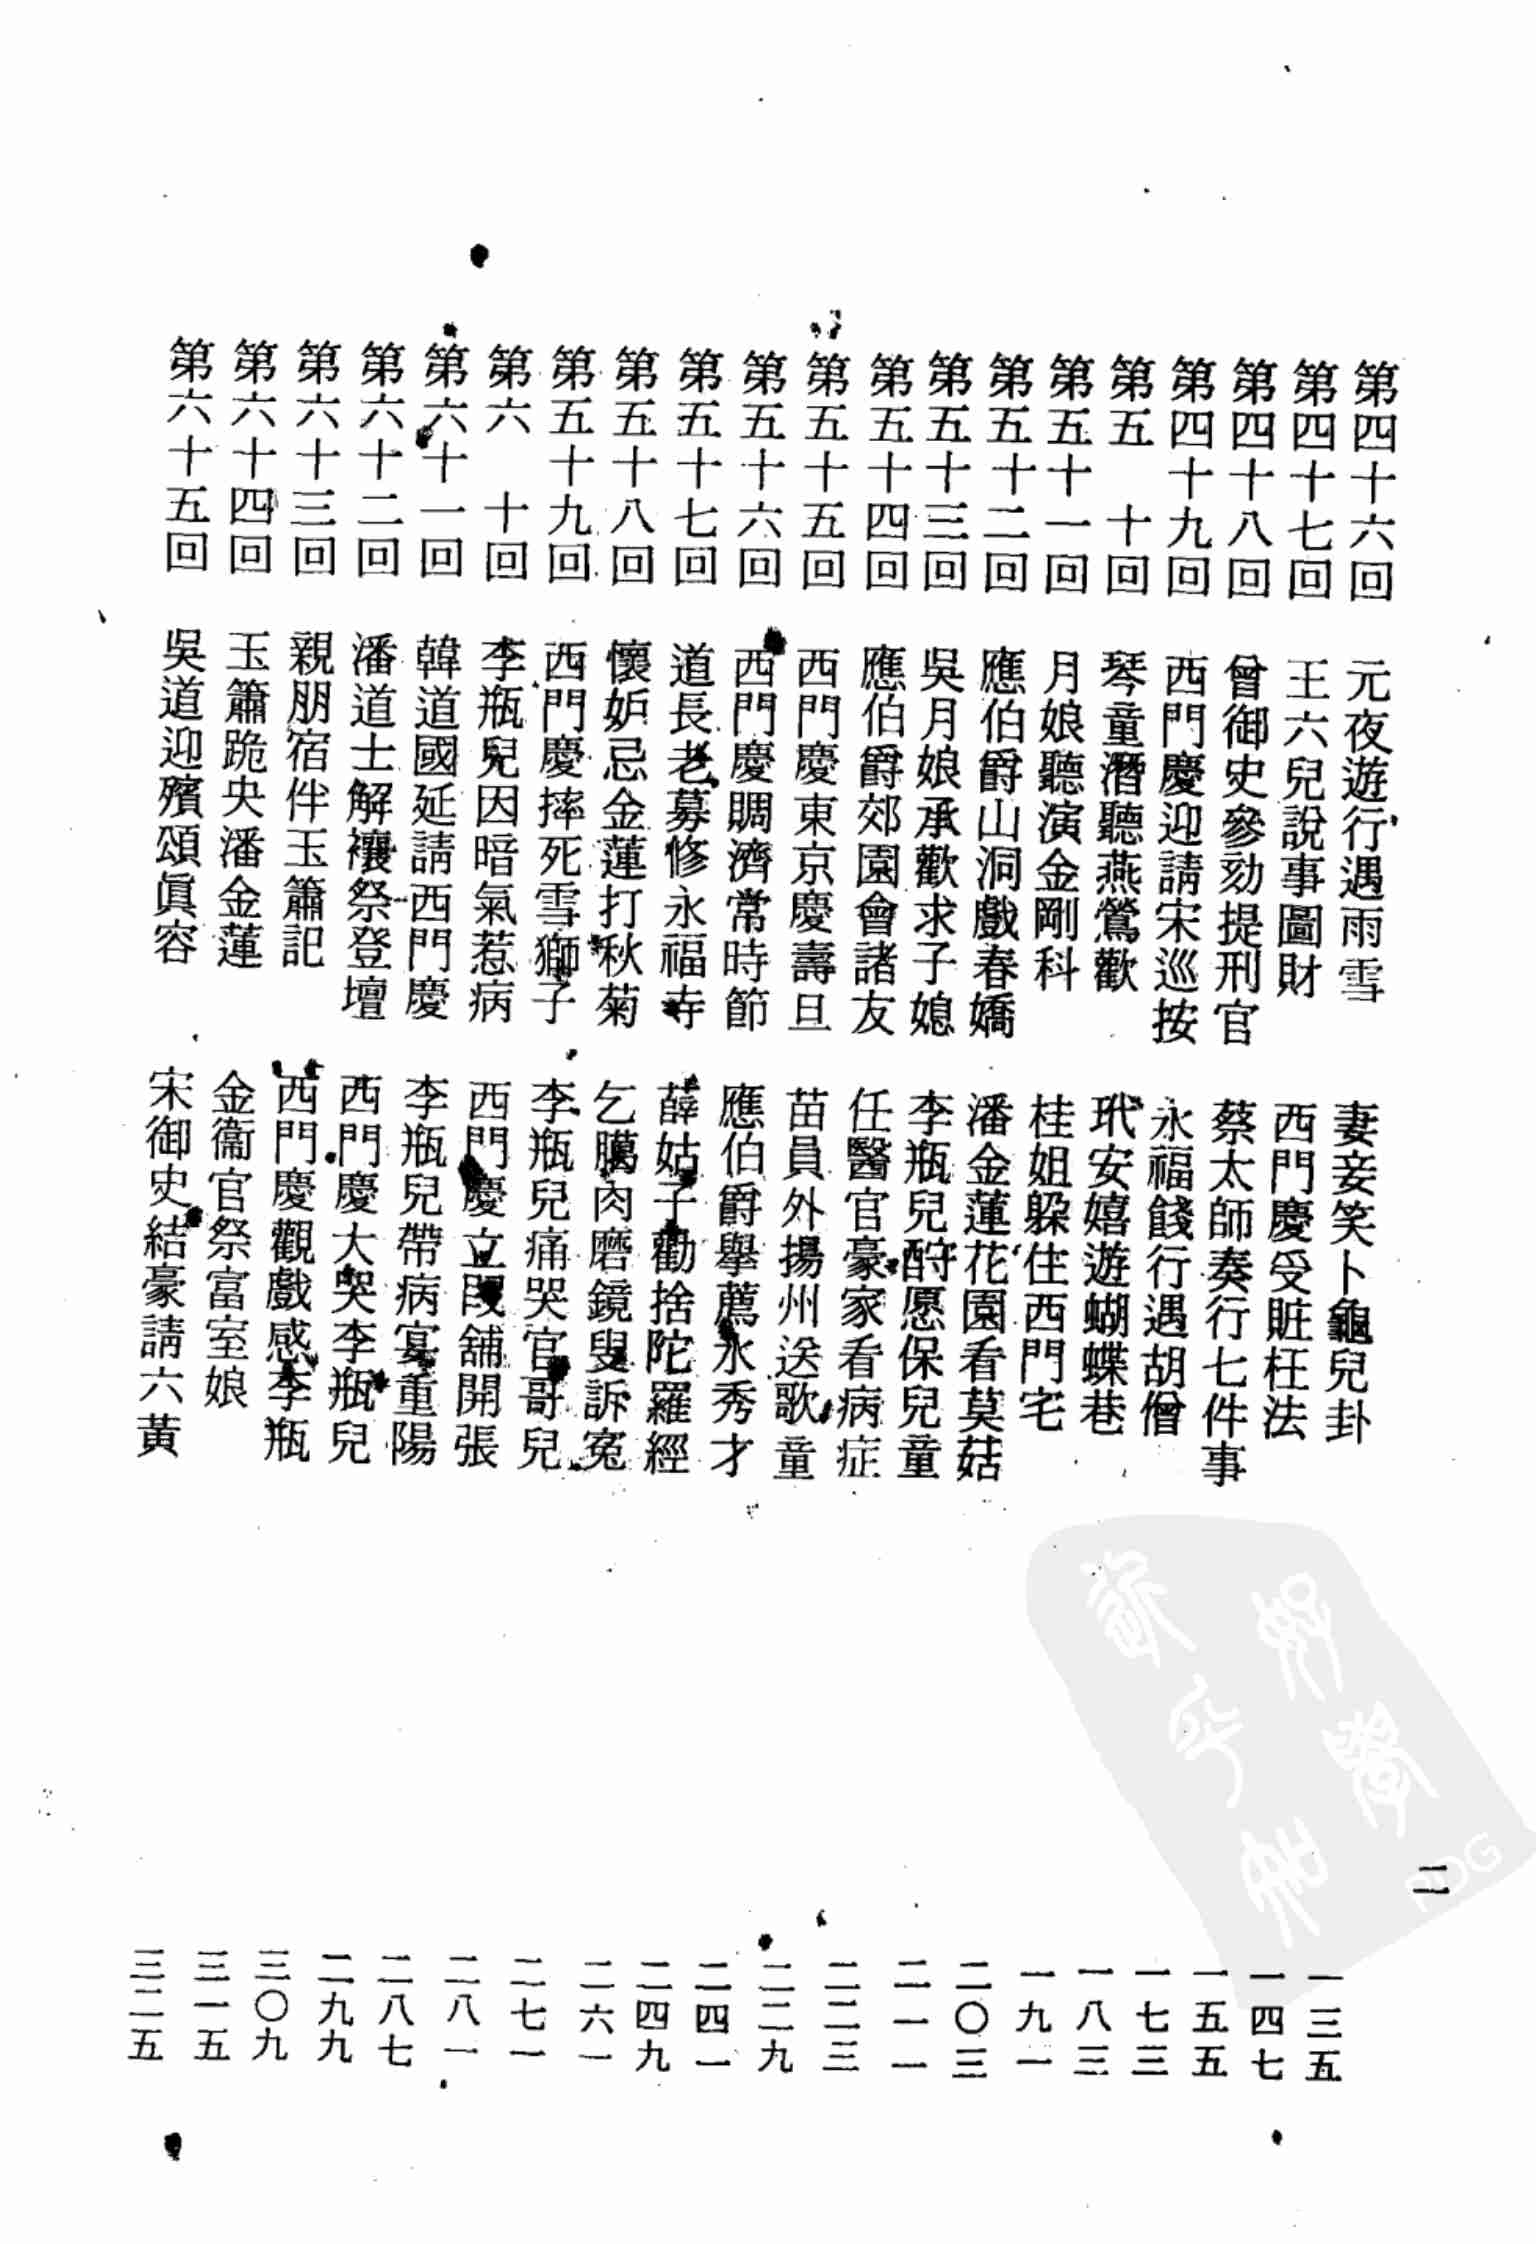 二
第四十六回 元夜遊行遇雨雪 妻妾笑卜龜兒卦 一三五
第四十七回 王六兒說事圖財 西門慶受賍枉法 一四七
第四十八回 曾御史參劾提刑官 蔡太師奏行七件事 一五五
第四十九回 西門慶迎請宋巡按 永福餞行遇胡僧 一七三
第五十回 琴童潛聽燕鶯歡 玳安嬉遊蝴蝶巷 一八三
第五十一回 月娘聽演金剛科 桂姐躱住西門宅 一九一
第五十二回 應伯爵山洞戲春嬌 潘金蓮花園看莫菇 二〇三
第五十三回 吳月娘承歡求子媳 李瓶兒酧愿保兒童 二一一
第五十四回 應伯爵郊園會諸友 任醫官豪家看病症 二二三
第五十五回 西門慶東京慶壽旦 苗員外揚州送歌童 二二九
第五十六回 西門慶賙濟常時節 應伯爵舉薦水秀才 二四一
第五十七回 道長老募修永福寺 薛姑子勸捨陀羅經 二四九
第五十八回 懷妒忌金蓮打秋菊 乞臈肉磨鏡叟訴冤 二六一
第五十九回 西門慶摔死雪獅子 李瓶兒痛哭官哥兒 二七一
第六十回 李瓶兒因暗氣惹病 西門慶立段舖開張 二八一
第六十一回 韓道國延請西門慶 李瓶兒帶病宴重陽 二八七
第六十二回 潘道士解禳祭登壇 西門慶大哭李瓶兒 二九九
第六十三回 親朋宿伴玉簫記 西門慶觀戲感李瓶 三〇九
第六十四回 玉簫跪央潘金蓮 金衞官祭富室娘 三一五
第六十五回 吳道迎殯頌眞容 宋御史結豪請六黃 三二五
PDG